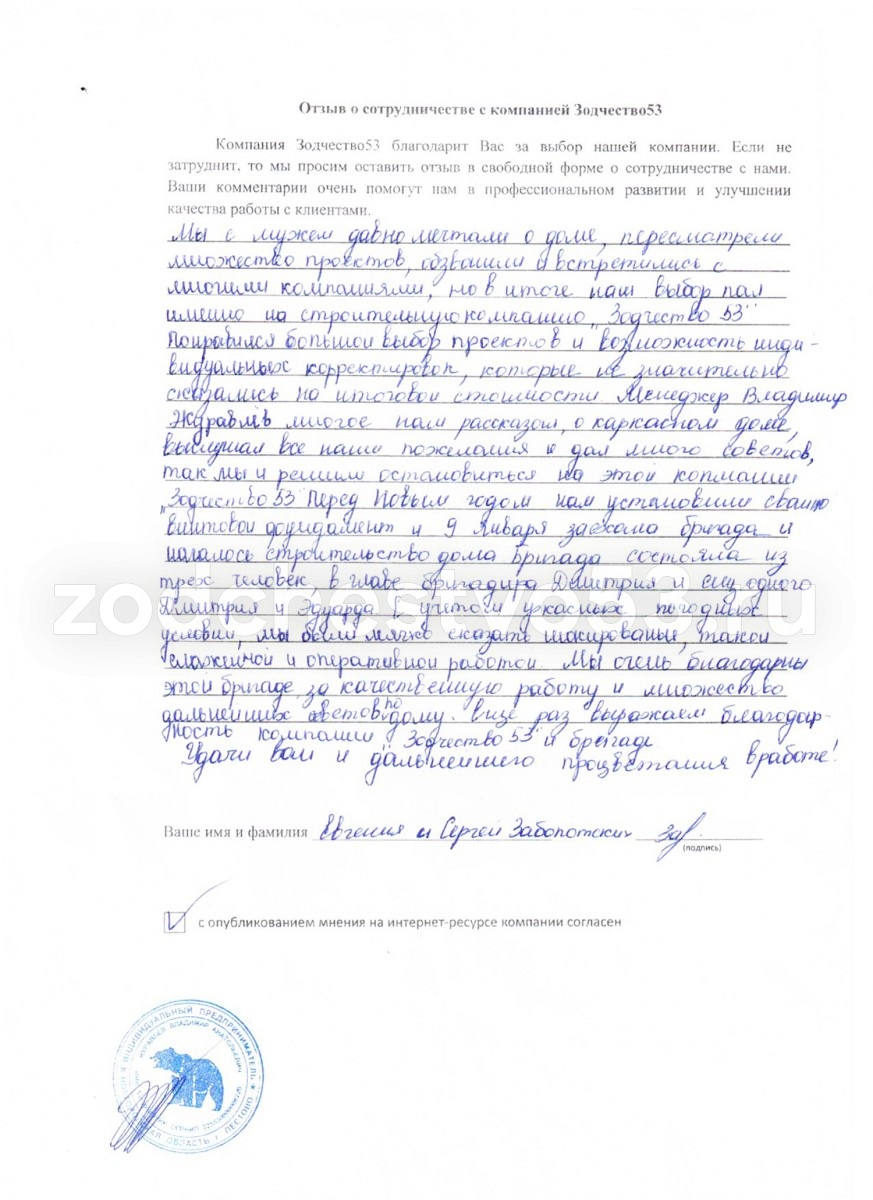 Отзыв о сотрудничестве с компанией Зодчество53
Компания Зодчество53 благодарит Вас за выбор нашей компании. Если не
затруднит, то мы просим оставить отзыв в свободной форме о сотрудничестве с нами.
Ваши комментарии очень помогут нам в профессиональном развитии и улучшении
качества работы с клиентами.
Мы с мужем давно мечтали о доме, пересмотрели
множество проектов, обзвонили и встретились с
многими компаниями, но в итоге наш выбор пал
именно на строительную компанию „Зодчество 53"
Понравился большой выбор проектов и возможность инди-
видуальных корректировок, которые не значительно
сказались на итоговой стоимости. Менеджер Владимир
Журавлёв многое нам рассказал, о каркасном доме,
выслушал все наши пожелания и дал много советов,
так мы и решили остановиться на этой копмании
„Зодчество 53" Перед Новым годом нам установили свайно
винтовой фундамент и 9 Января заехала бригада и
началось строительство дома Бригада состояла из
трех человек в главе бригадира Дмитрия и ещё одного
Дмитрия и Эдуарда С учетом ужасных погодных
условий, мы были мягко сказать шокированы, такой
слаженной и оперативной работой. Мы очень благодарны
этой бригаде за качественную работу и множество
дальнейших советов по дому. Еще раз выражаем благодар-
ность компании „Зодчество 53" и бригаде
Удачи вам и дальнейшего процветания в работе!
Ваше имя и фамилия Евгения и Сергей Заболотских Заб.
(подпись)
с опубликованием мнения на интернет-ресурсе компании согласен
zodchestvo53.ru
ИНДИВИДУАЛЬНЫЙ ПРЕДПРИНИМАТЕЛЬ
ЖУРАВЛЕВ ВЛАДИМИР АНАТОЛЬЕВИЧ
ОГРНИП
ОБЛАСТЬ г. ПЕСТОВО